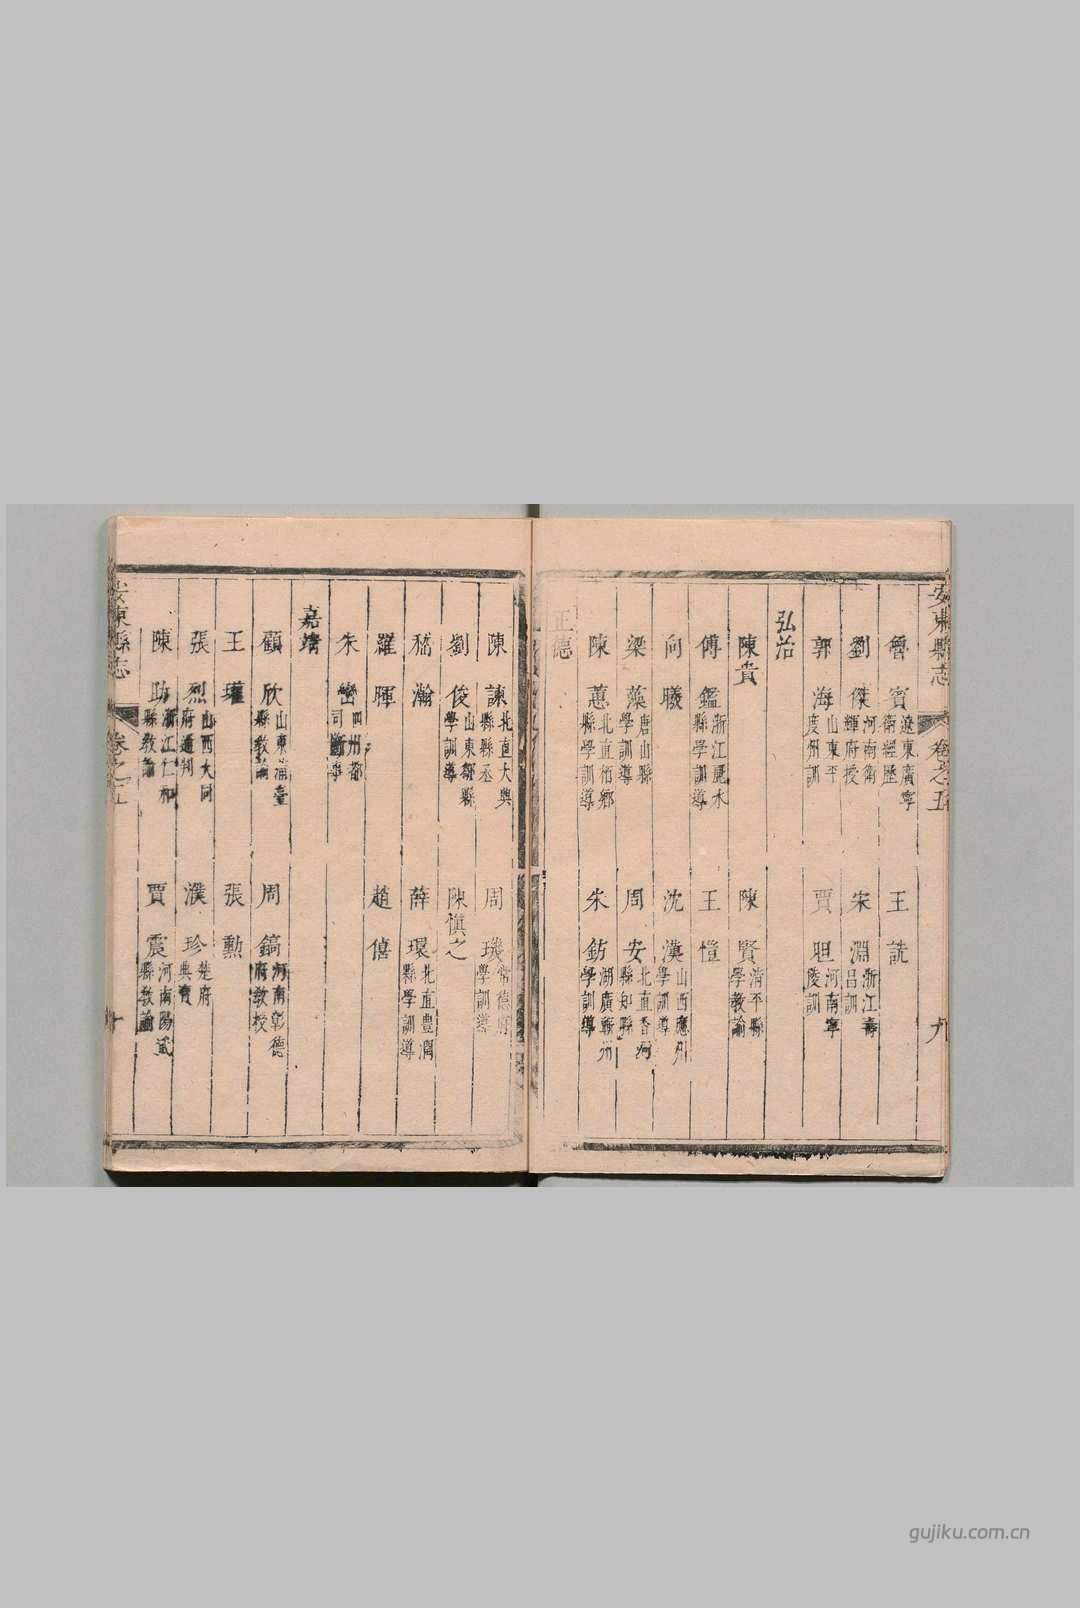 安東縣志 卷之五 九
魯賓 遼東廣寧衛經歷 王詵
劉傑 河南衛輝府授 宋淵 浙江壽昌訓
郭海 山東平度州訓 賈坦 河南寧陵訓
弘治
陳貴 陳賢 清平縣學教諭
傅鑑 浙江麗水縣學訓導 王愷
向曦 沈漢 山西應州學訓導
梁藻 唐山縣學訓導 周安 北直香河縣知縣
陳蕙 北直栢鄉縣學訓導 朱鈁 湖廣蘄州學訓導
正德
陳諫 北直大興縣縣丞 周璣 常德府學訓導
劉俊 山東鄒縣學訓導 陳慎之
嵇瀚 薛環 北直豐潤縣學訓導
羅暉 趙僖
朱巒 四州都司斷事
嘉靖
顧欣 山東 縣教諭 周鎬 河南彰德府教授
王瓘 張勲
張烈 山西大同府通判 濮珍 楚府典寶
陳助 浙江仁和縣教諭 賈震 河南陽武縣教諭
安東縣志 卷之五 十
gujiku.com.cn